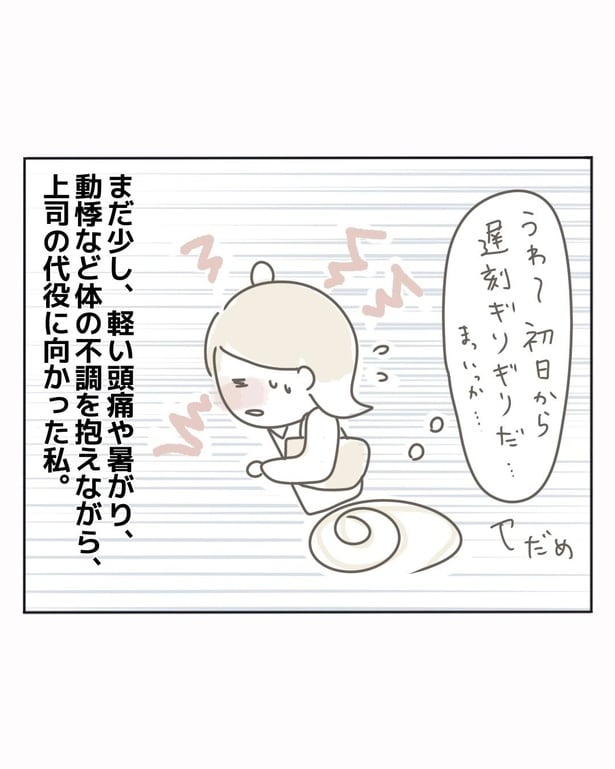 うわ〜初日から
遅刻ギリギリだ…
まっいっか…
↑だめ
まだ少し、軽い頭痛や暑がり、
動悸など体の不調を抱えながら、
上司の代役に向かった私。